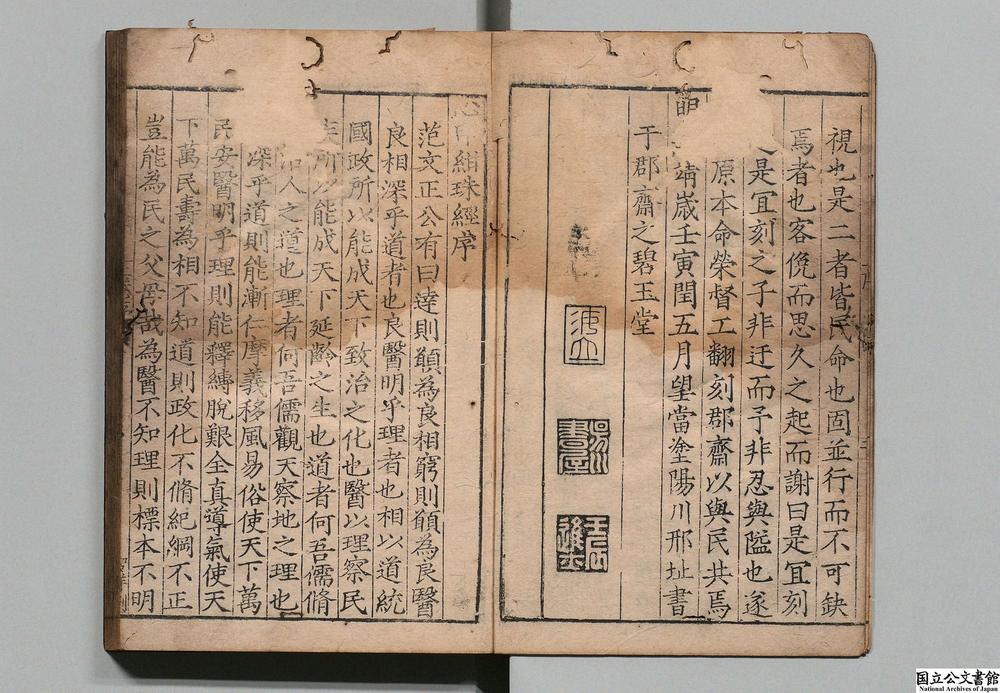 視也是二者皆民命也固並行而不可缺
焉者也客俛而思久之起而謝曰是宜刻
是宜刻之子非迂而予非忍與隘也遂
原本命榮督工翻刻郡齋以與民共焉
靖歲壬寅閏五月望當塗陽川邢址書
于郡齋之碧玉堂
書屋
進士
紺珠經序
范文正公有曰達則願為良相窮則願為良醫
良相深乎道者也良醫明乎理者也相以道統
國政所以能成天下致治之化也醫以理察民
疾所以能成天下延齡之生也道者何吾儒脩
治人之道也理者何吾儒觀天察地之理也
深乎道則能漸仁摩義移風易俗使天下萬
民安醫明乎理則能釋縛脫艱全真導氣使天
下萬民壽為相不知道則政化不脩紀綱不正
豈能為民之父母哉為醫不知理則標本不明
国立公文書館
National Archives of Japan